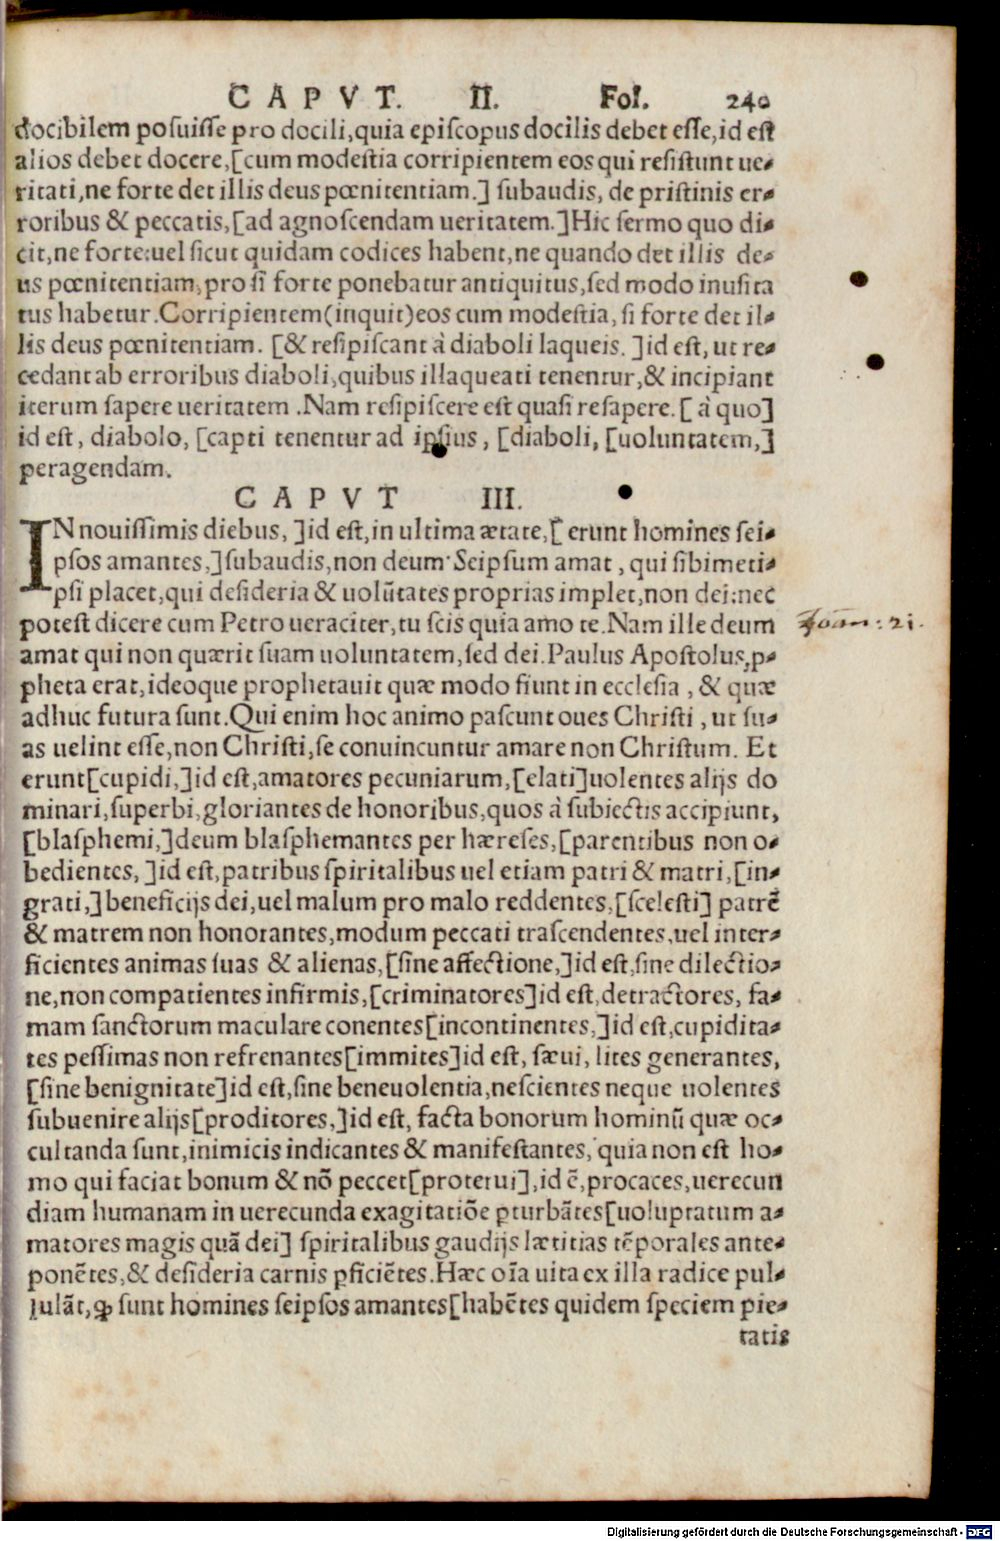 CAPVT. II. Fol. 240
docibilem posuisse pro docili,quia episcopus docilis debet esse,id est
alios debet docere,[cum modestia corripientem eos qui resistunt ue-
ritati,ne forte det illis deus pœnitentiam.] subaudis, de pristinis er-
roribus & peccatis,[ad agnoscendam ueritatem.]Hic sermo quo di-
cit,ne forte:uel sicut quidam codices habent,ne quando det illis de-
us pœnitentiam,pro si forte ponebatur antiquitus,sed modo inusita
tus habetur.Corripientem(inquit)eos cum modestia, si forte det il-
lis deus pœnitentiam. [& resipiscant à diaboli laqueis. ]id est, ut re-
cedant ab erroribus diaboli,quibus illaqueati tenentur,& incipiant
iterum sapere ueritatem .Nam resipiscere est quasi resapere.[ à quo]
id est, diabolo, [capti tenentur ad ipsius, [diaboli, [uoluntatem,]
peragendam.
CAPVT III.
IN nouissimis diebus, ]id est,in ultima ætate,[ erunt homines sei-
psos amantes,]subaudis,non deum·Seipsum amat , qui sibimeti-
psi placet,qui desideria & uolūtates proprias implet,non dei:nec
potest dicere cum Petro ueraciter,tu scis quia amo te.Nam ille deum
Joan: 21.
amat qui non quærit suam uoluntatem,sed dei.Paulus Apostolus,ꝓ-
pheta erat,ideoque prophetauit quæ modo fiunt in ecclesia , & quæ
adhuc futura sunt.Qui enim hoc animo pascunt oues Christi , ut su-
as uelint esse,non Christi,se conuincuntur amare non Christum. Et
erunt[cupidi,]id est,amatores pecuniarum,[elati]uolentes alijs do
minari,superbi,gloriantes de honoribus,quos à subiectis accipiunt,
[blasphemi,]deum blasphemantes per hæreses,[parentibus non o-
bedientes, ]id est,patribus spiritalibus uel etiam patri & matri,[in-
grati,]beneficijs dei,uel malum pro malo reddentes,[scelesti] patrē
& matrem non honorantes,modum peccati trascendentes,uel inter-
ficientes animas suas & alienas,[sine affectione,]id est,sine dilectio-
ne,non compatientes infirmis,[criminatores]id est,detractores, fa-
mam sanctorum maculare conentes[incontinentes,]id est,cupidita-
tes pessimas non refrenantes[immites]id est, sæui, lites generantes,
[sine benignitate]id est,sine beneuolentia,nescientes neque uolentes
subuenire alijs[proditores,]id est, facta bonorum hominū quæ oc-
cultanda sunt,inimicis indicantes & manifestantes, quia non est ho-
mo qui faciat bonum & nō peccet[proterui],id ē,procaces,uerecun
diam humanam in uerecunda exagitatiōe ꝑturbātes[uoluptatum a-
matores magis quā dei] spiritalibus gaudijs lætitias tēporales ante-
ponētes,& desideria carnis ꝑficiētes.Hæc oīa uita ex illa radice pul-
lulāt,ꝙ sunt homines seipsos amantes[habētes quidem speciem pie-
tatis
Digitalisierung gefördert durch die Deutsche Forschungsgemeinschaft - DFG